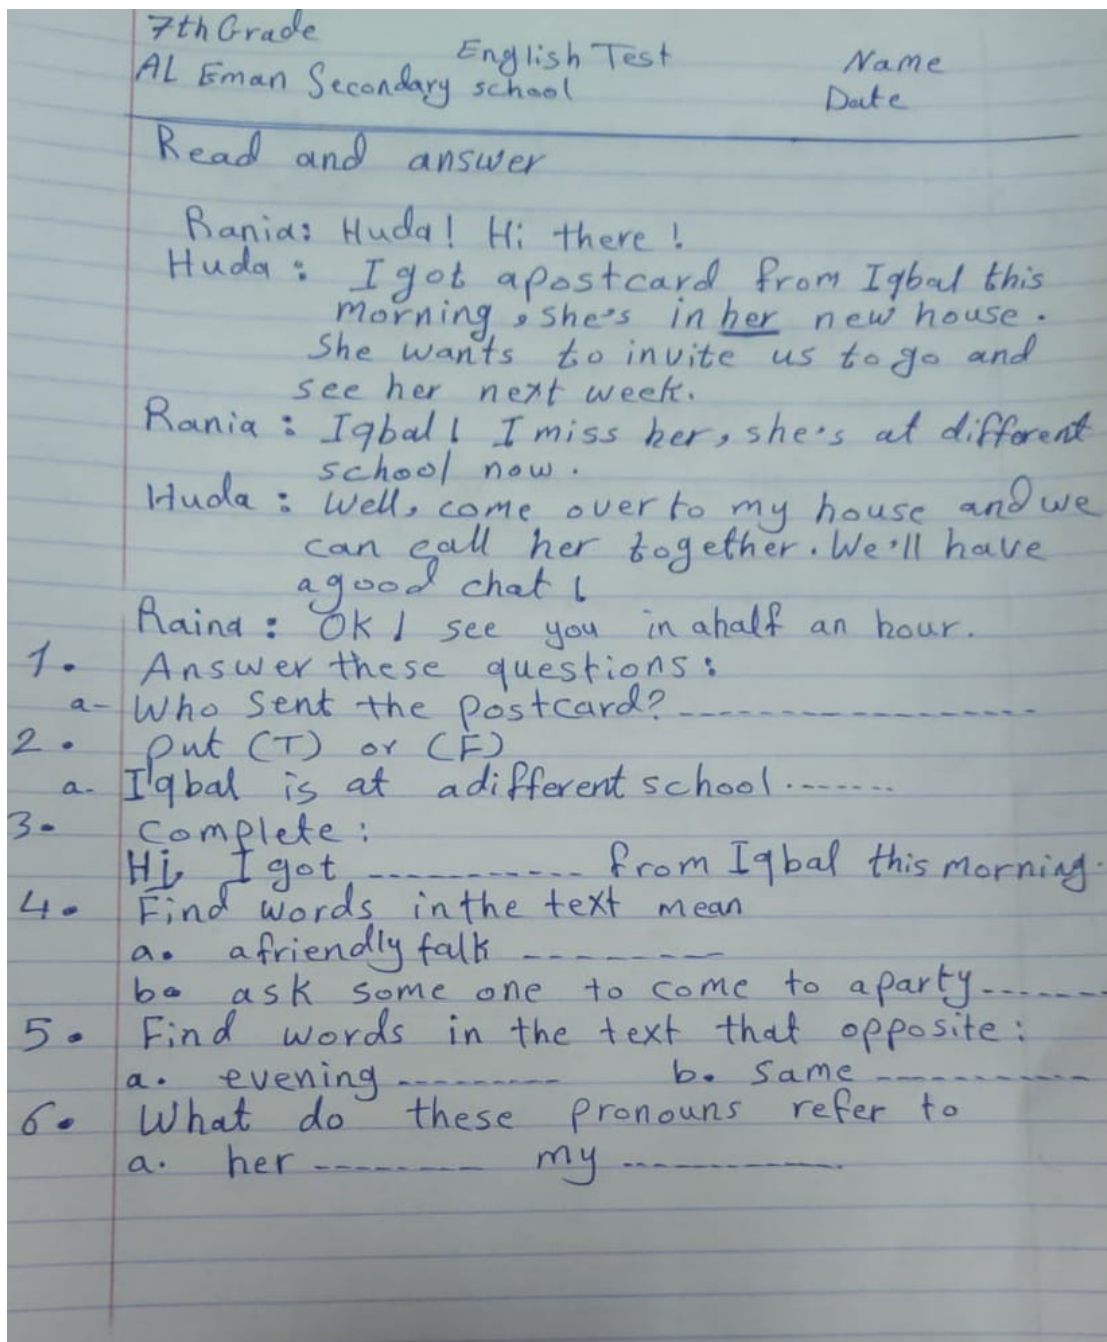 7th Grade
English Test
Name
AL Eman Secondary school
Date
Read and answer
Rania: Huda! Hi there!
Huda: I got apostcard from Iqbal this
morning, she's in her new house.
She wants to invite us to go and
see her next week.
Rania: Iqbal! I miss her, she's at different
school now.
Huda: Well, come over to my house and we
can call her together. We'll have
agood chat!
Raina: OK! see you in ahalf an hour.
1. Answer these questions:
a- Who sent the postcard? ------------------
2. put (T) or (F)
a. Iqbal is at adifferent school.......
3- complete:
Hi, I got ----------- from Iqbal this morning.
4. Find words inthe text mean
a. afriendly falk ---------
b. ask some one to come to aparty-------
5. Find words in the text that opposite:
a. evening --------- b. same -----------
6. What do these pronouns refer to
a. her -------- my -----------